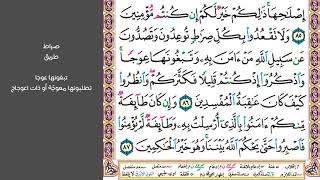 إصلاحها ذلكم خير لكم إن كنتم مؤمنين
٨٥ ولا تقعدوا بكل صراط توعدون وتصدون
عن سبيل الله من ءامن به وتبغونها عوجا
واذكروا إذ كنتم قليلا فكثركم وانظروا
كيف كان عاقبة المفسدين ٨٦ وإن كان طائفة
منكم ءامنوا بالذي أرسلت به وطائفة لم يؤمنوا
فاصبروا حتى يحكم الله بيننا وهو خير الحاكمين ٨٧
صراط
طريق
تبغونها عوجا
تطلبونها معوجة أو ذات اعوجاج